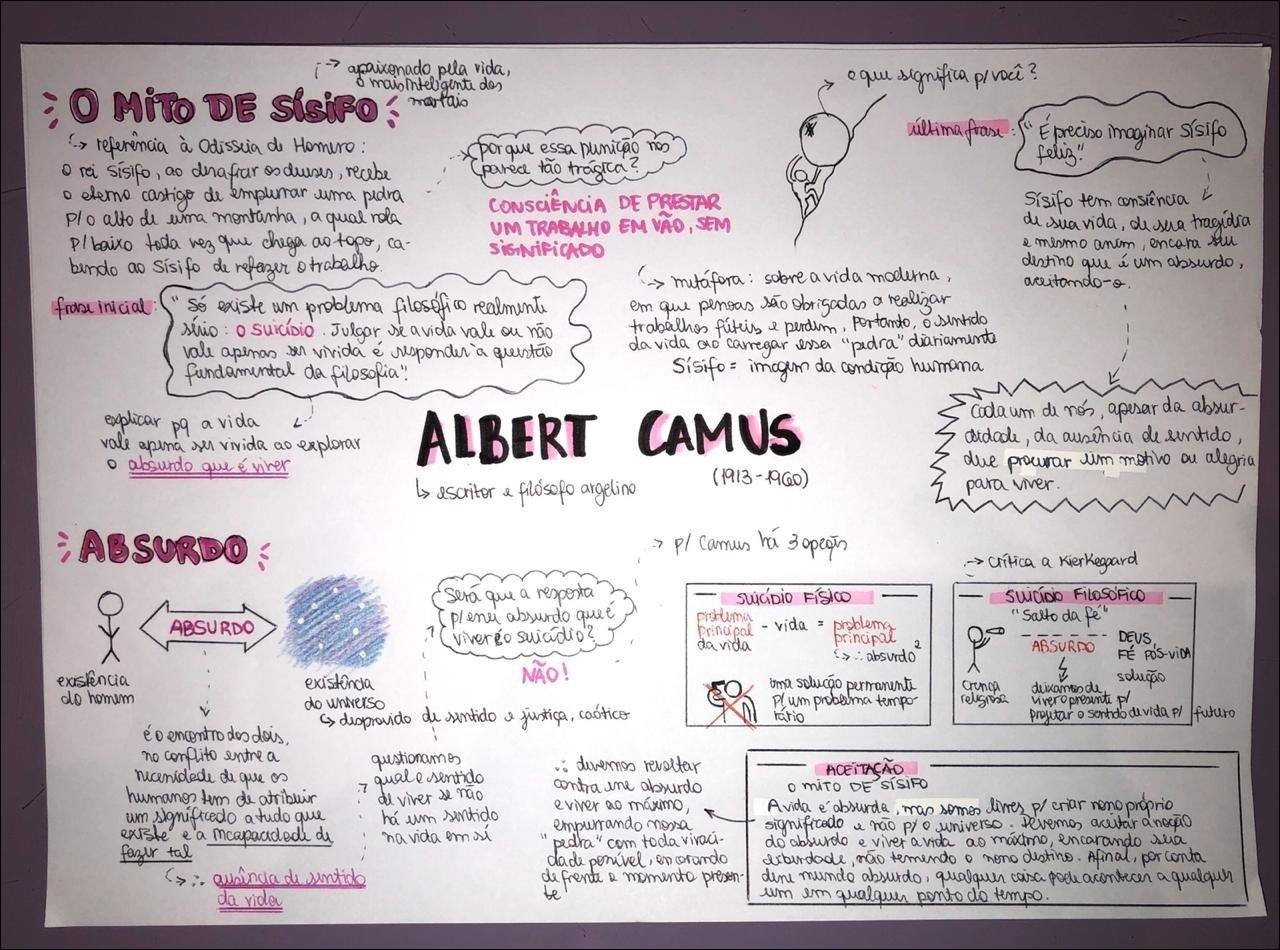 O MITO DE SÍSIFO
↳ apaixonado pela vida,
o mais inteligente dos
mortais
↳ referência à Odisseia de Homero:
o rei Sísifo, ao desafiar os deuses, recebe
o eterno castigo de empurrar uma pedra
p/ o alto de uma montanha, a qual rola
p/ baixo toda vez que chega ao topo, ca-
bendo ao Sísifo de refazer o trabalho.
por que essa punição nos
parece tão trágica?
CONSCIÊNCIA DE PRESTAR
UM TRABALHO EM VÃO, SEM
SIGNIFICADO
o que significa p/ você?
última frase:
"É preciso imaginar Sísifo
feliz"
Sísifo tem consiência
de sua vida, de sua tragédia
e mesmo assim, encara seu
destino que é um absurdo,
aceitando-o.
Cada um de nós, apesar da absur-
disidade, da ausência de sentido,
deve procurar um motivo ou alegria
para viver.
↳ metáfora: sobre a vida moderna,
em que pessoas são obrigadas a realizar
trabalhos fúteis e perdem, portanto, o sentido
da vida ao carregar essa "pedra" diariamente
Sísifo = imagem da condição humana
frase inicial:
"Só existe um problema filosófico realmente
sério: o suicídio. Julgar se a vida vale ou não
vale apenas ser vivida é responder à questão
fundamental da filosofia".
explicar pq a vida
vale apena ser vivida ao explorar
o absurdo que é viver
ALBERT CAMUS
(1913-1960)
↳ escritor e filósofo argelino
ABSURDO
ABSURDO
existência
do homem
existência
do universo
↳ desprovido de sentido e justiça, caótico
é o encontro dos dois,
no conflito entre a
necessidade de que os
humanos tem de atribuir
um significado a tudo que
existe e a incapacidade de
fazer tal
↳ ∴ ausência de sentido
da vida
questionamos
qual e sentido
de viver se não
há um sentido
na vida em si
Será que a resposta
p/ esse absurdo que é
viver é o suicídio?
NÃO!
→ p/ Camus há 3 opções
SUICÍDIO FÍSICO
problema
principal
da vida
- vida = problema
principal
↳ ∴ absurdo²
uma solução permanente
p/ um problema tempo-
rário
→ crítica a Kierkegaard
SUICÍDIO FILOSÓFICO
"Salto da fé"
ABSURDO
DEUS,
FÉ PÓS-VIDA
solução
crença
religiosa
deixamos de
viver o presente p/
projetar o sentido de vida p/ futuro
ACEITAÇÃO
O MITO DE SÍSIFO
A vida é absurda, mas somos livres p/ criar nosso próprio
significado e não p/ o universo. Devemos aceitar a noção
do absurdo e viver a vida ao máximo, encarando sua
absurdade, não temendo o nosso destino. Afinal, por conta
desse mundo absurdo, qualquer coisa pode acontecer a qualquer
um em qualquer ponto do tempo.
∴ devemos revoltar
contra esse absurdo
e viver ao máximo,
empurrando nossa
"pedra" com toda viraci-
dade possível, encarando
de frente o momento presen-
te